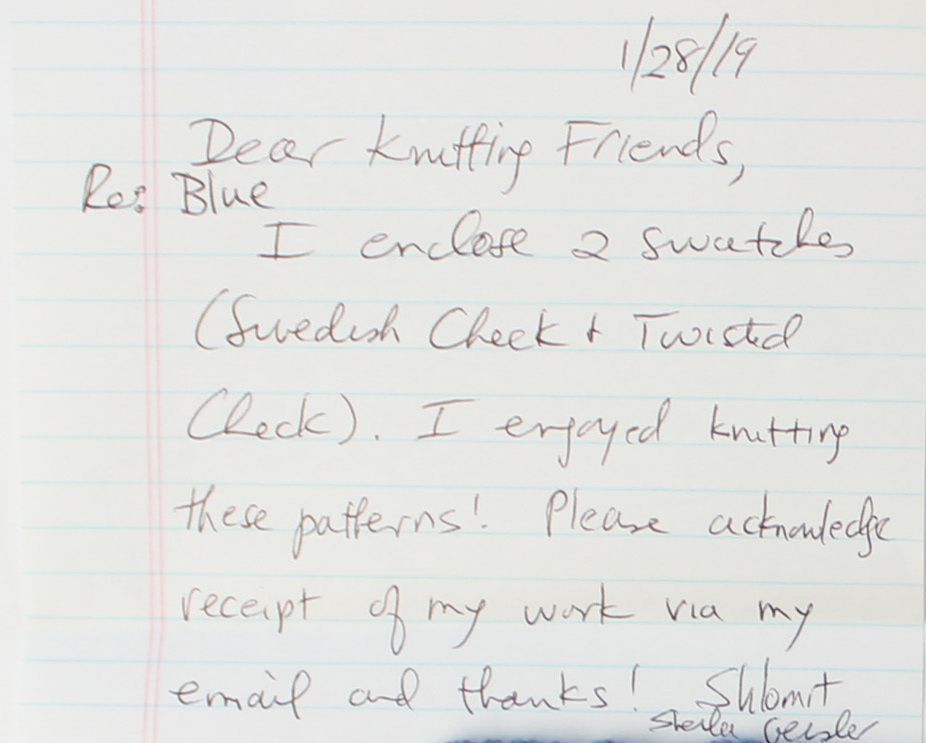 1/28/19
Dear Knitting Friends,
Re: Blue
I enclose 2 swatches
(Swedish Check + Twisted
Check). I enjoyed knitting
these patterns! Please acknowledge
receipt of my work via my
email and thanks! Shlomit
Sheila